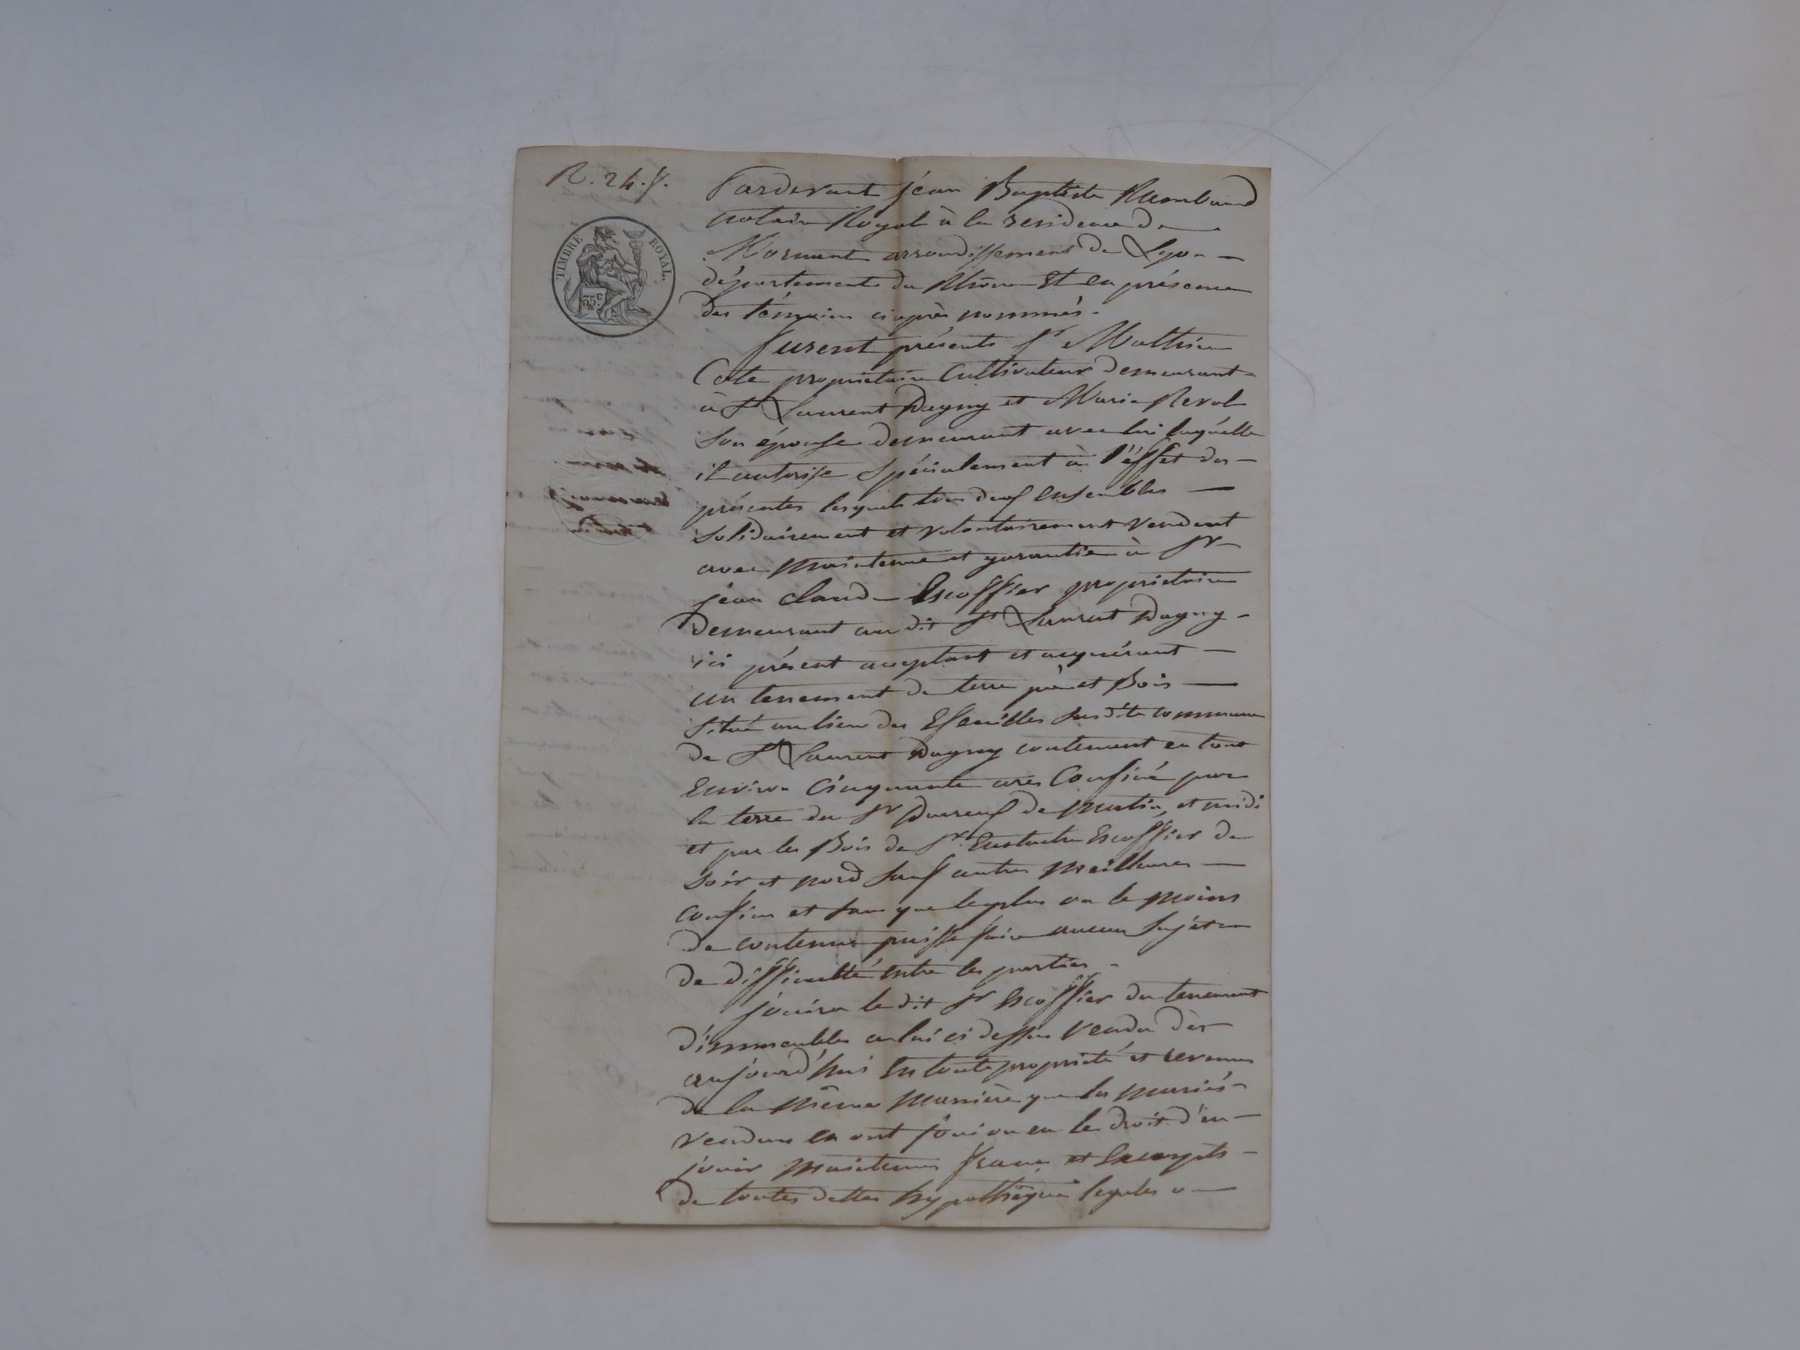 R. 24. f.
TIMBRE ROYAL
35 c
Pardevant jean Baptiste Rambaud
notaire Royal à la residence de
Mornant arrondissement de Lyon
département du Rhône Et en présence
des témoins ciaprès nommés.
furent présents Sr Mathieu
Cote propriétaire Cultivateur demeurant
à St Laurent Dagny et Marie Revol
Son épouse demeurant avec lui laquelle
il autorise Spécialement à l'éffet des
présentes lesquels tous deux Ensembles
Solidairement et volontairement vendent
avec maintenue et garantie à Sr
jean Claude Escoffier propriétaire
demeurant au dit St Laurent Dagny
ici présent acceptant et acquérant
un tenement de terre pré et Bois
Situé au lieu des susdite commune
de St Laurent Dagny contenant en tout
Environ Cinquante ares Confiné par
la terre du Sr de matin, et midi
et par les Bois de Sr Eustache Escoffier de
Soir et nord Sauf autres meilleures
confins et sans que le plus ou le moins
de contenue puisse faire aucun Sujet
de difficulté entre les parties.
jouira le dit Sr Escoffier du tenement
d'immeubles à lui ci dessus vendu dès
aujourd'hui En toute propriété et revenus
de la même manière que les mariés
vendeurs en ont joui ou eu le droit d'en
jouir maintenu franc et Exempts
de toutes dettes hypothèques legales ou